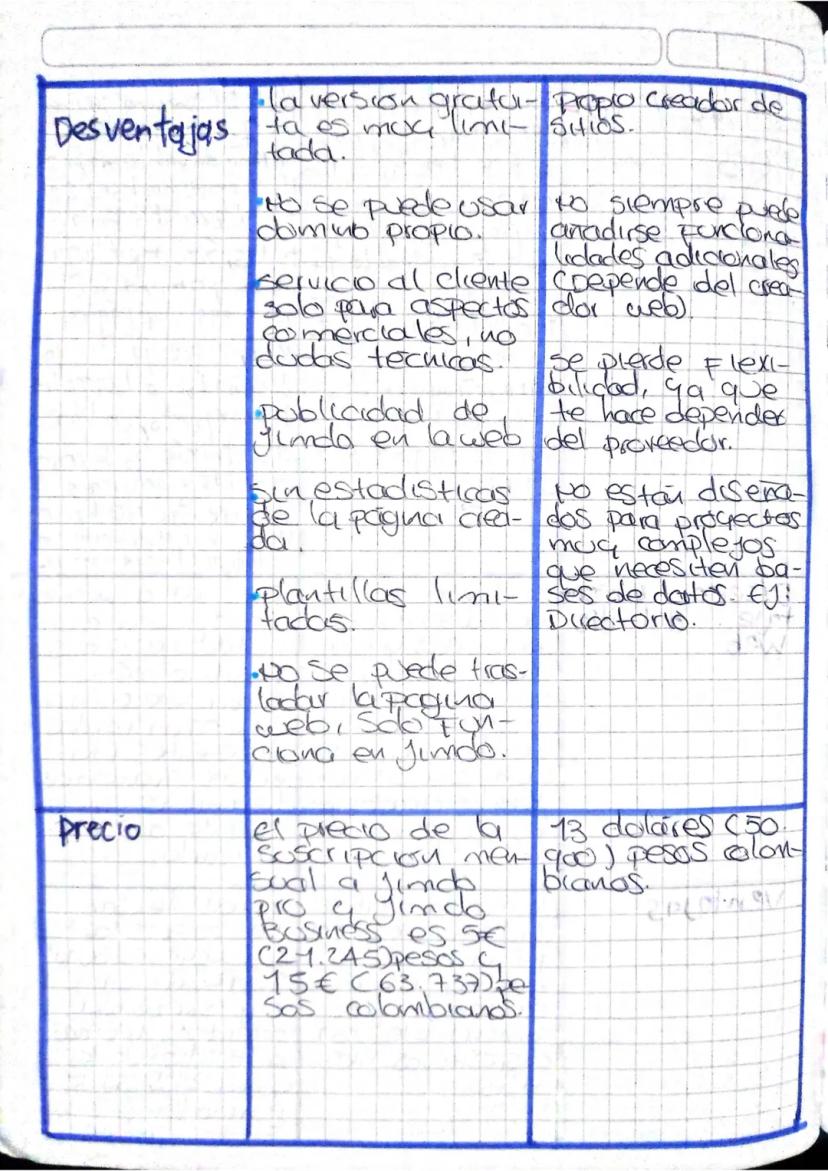 Desventajas
·la version gratui-
ta es muy limi-
tada.
·No se puede usar
dominio propio.
servicio al cliente
solo para aspectos
comerciales, no
dudas tecnicas.
·publicidad de
jimdo en la web
Sin estadisticas
de la página crea-
da.
·plantillas limi-
tadas.
·No se puede tras-
ladar la pagina
web, Solo Fun-
ciona en jimdo.
Propio creador de
sitios.
No siempre puede
añadirse Funciona-
lidades adicionales
(Depende del crea-
dor web)
se pierde Flexi-
bilidad, ya que
te hace depender
del proveedor.
No están diseña-
dos para proyectos
muy complejos
que necesiten ba-
ses de datos. EJ:
Directorio.
precio
el precio de la
suscripcion men-
sual a jimdo
pro y jimdo
Business es 5€
(21.245)pesos y
15€ (63.737)pe
sos colombianos.
13 dolares (50.
900) pesos colom-
bianos.